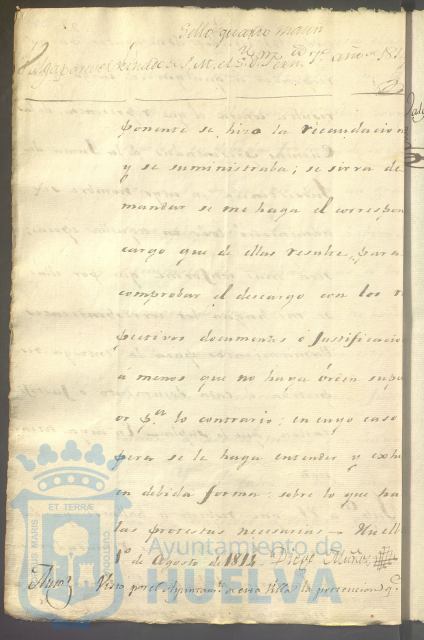 Sello quarto maravs
Valga por el reindo de S. M. el S. D. Fern. 7º año de 181
ponente se hizo la recaudacion
y se suministraba; se sirva de
mandar se me haga el correspon
cargo que de ellas resulte, para
comprobar el descargo con los r
pectivos documentos ó Justificacio
á menos que no haya órden supe
or pª lo contrario; en cuyo caso
pera se le haga entender y exh
en debida forma: sobre lo que ha
las protestas necesarias. Huel
1º de Agosto de 1814 Diego Muñoz
Visto por el Ayuntamto de esta Villa la precedente q
ET TERRÆ
US MARIS
CUSTODI
Ayuntamiento de
HUELVA